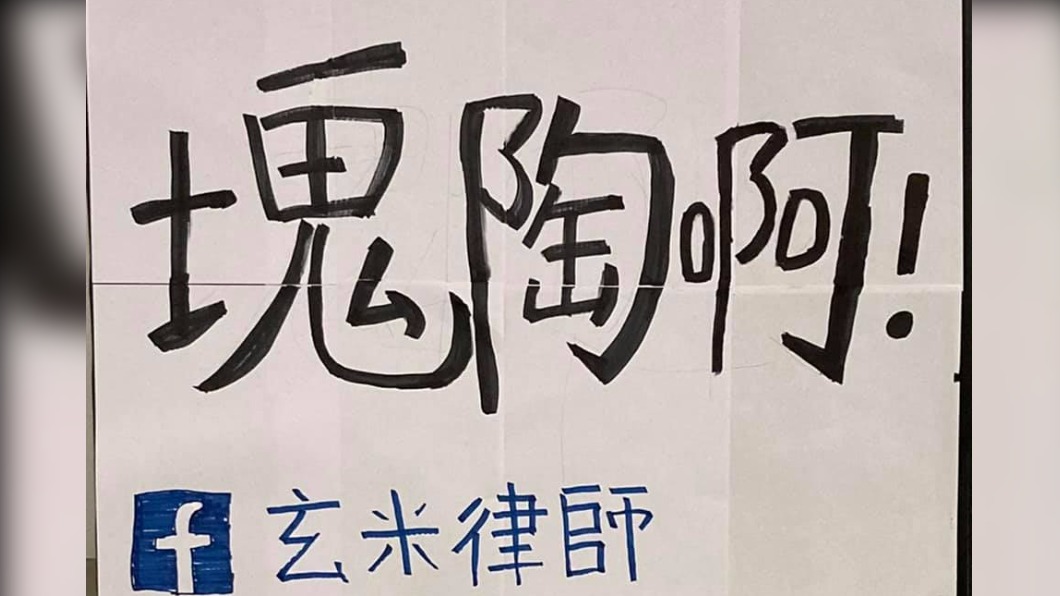 塊陶啊!
f 玄米律師